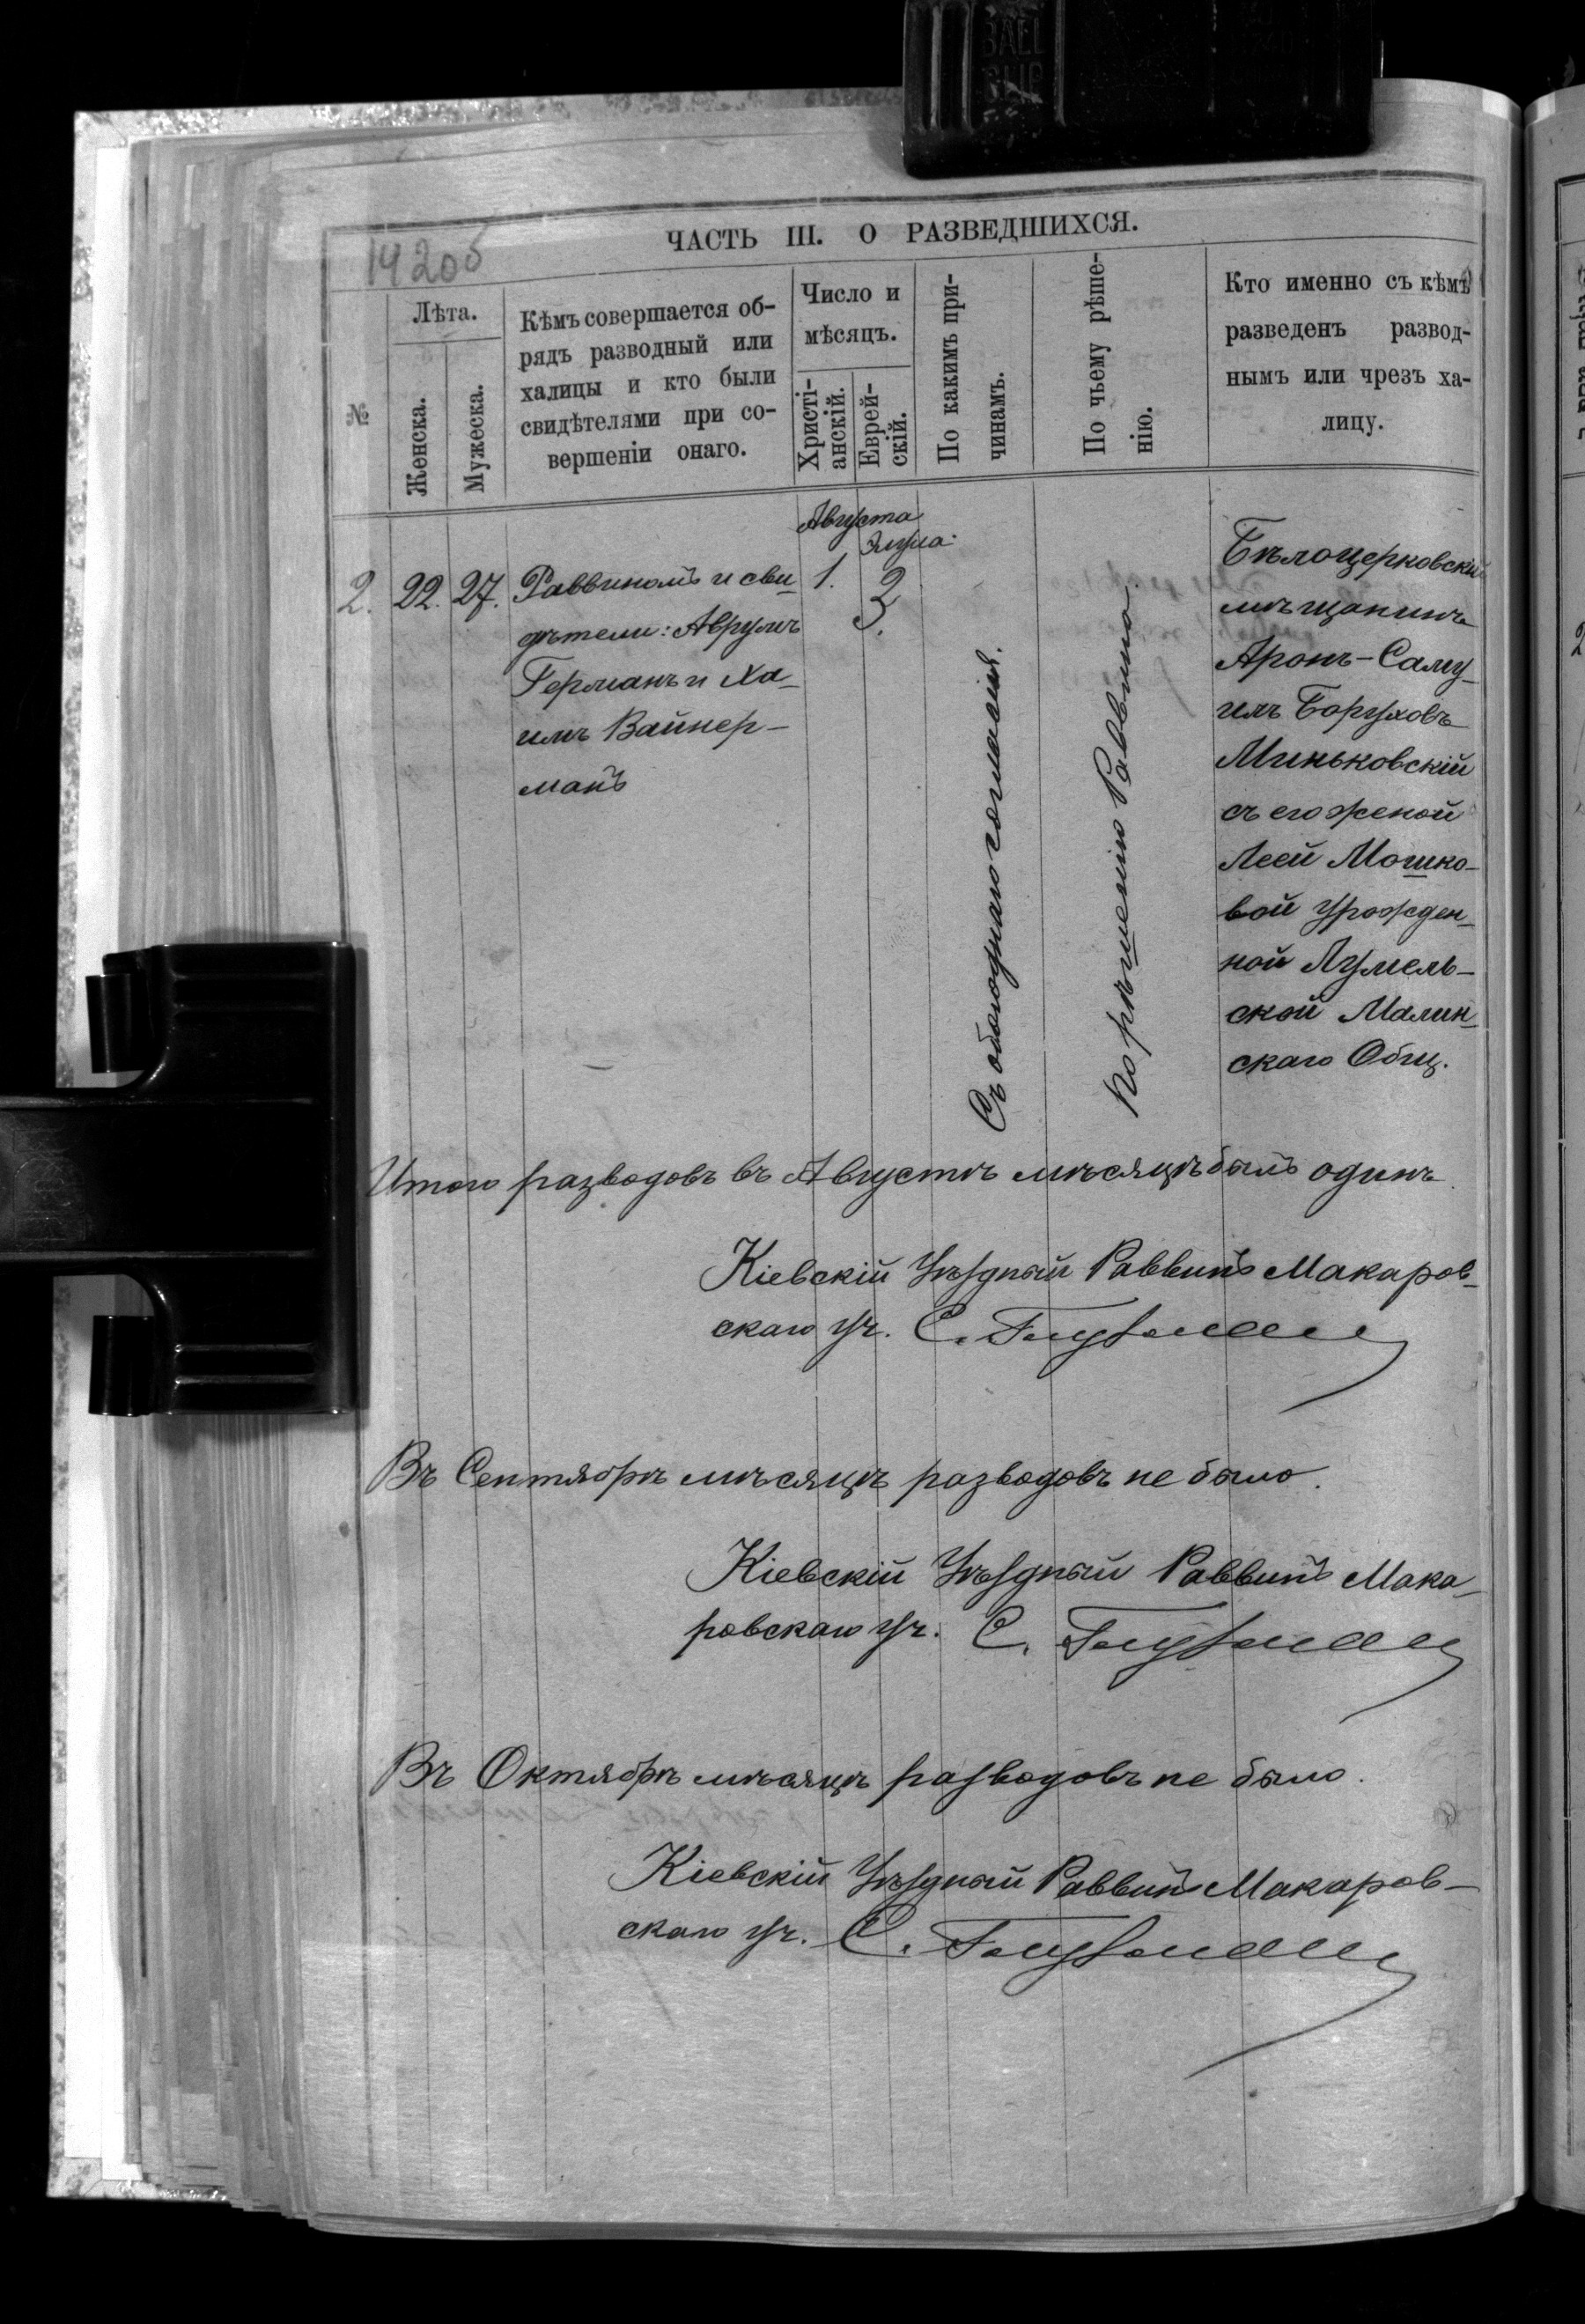 1420б
ЧАСТЬ III. О РАЗВЕДШИХСЯ.
№
Лѣта.
Женска.
Мужеска.
Кѣмъ совершается об-
рядъ разводный или
халицы и кто были
свидѣтелями при со-
вершеніи онаго.
Число и
мѣсяцъ.
Христі-
анскій.
Еврей-
скій.
По какимъ при-
чинамъ.
По чьему рѣше-
нію.
Кто именно съ кѣмъ
разведенъ развод-
нымъ или чрезъ ха-
лицу.
2. 22. 27.
Раввиномъ и сви-
дѣтели: Аврумъ
Германъ и Ха-
имъ Вайнер-
манъ
Августа
1.
Элула
3.
Съ обоюднаго согласія.
По рѣшенію Раввина.
Бѣлоцерковскій
мѣщанинъ
Аронъ-Саму-
илъ Боруховъ
Миньковскій
съ его женой
Леей Мошко-
вой урожден-
ной Лумель-
ской Малин-
скаго Общ.
Итого разводовъ въ Августѣ мѣсяцѣ былъ одинъ
Кіевскій Уѣздный Раввинъ Макаров-
скаго уч. С.
Въ Сентябрѣ мѣсяцѣ разводовъ не было.
Кіевскій Уѣздный Раввинъ Мака-
ровскаго уч. С.
Въ Октябрѣ мѣсяцѣ разводовъ не было.
Кіевскій Уѣздный Раввинъ Макаров-
скаго уч. С.